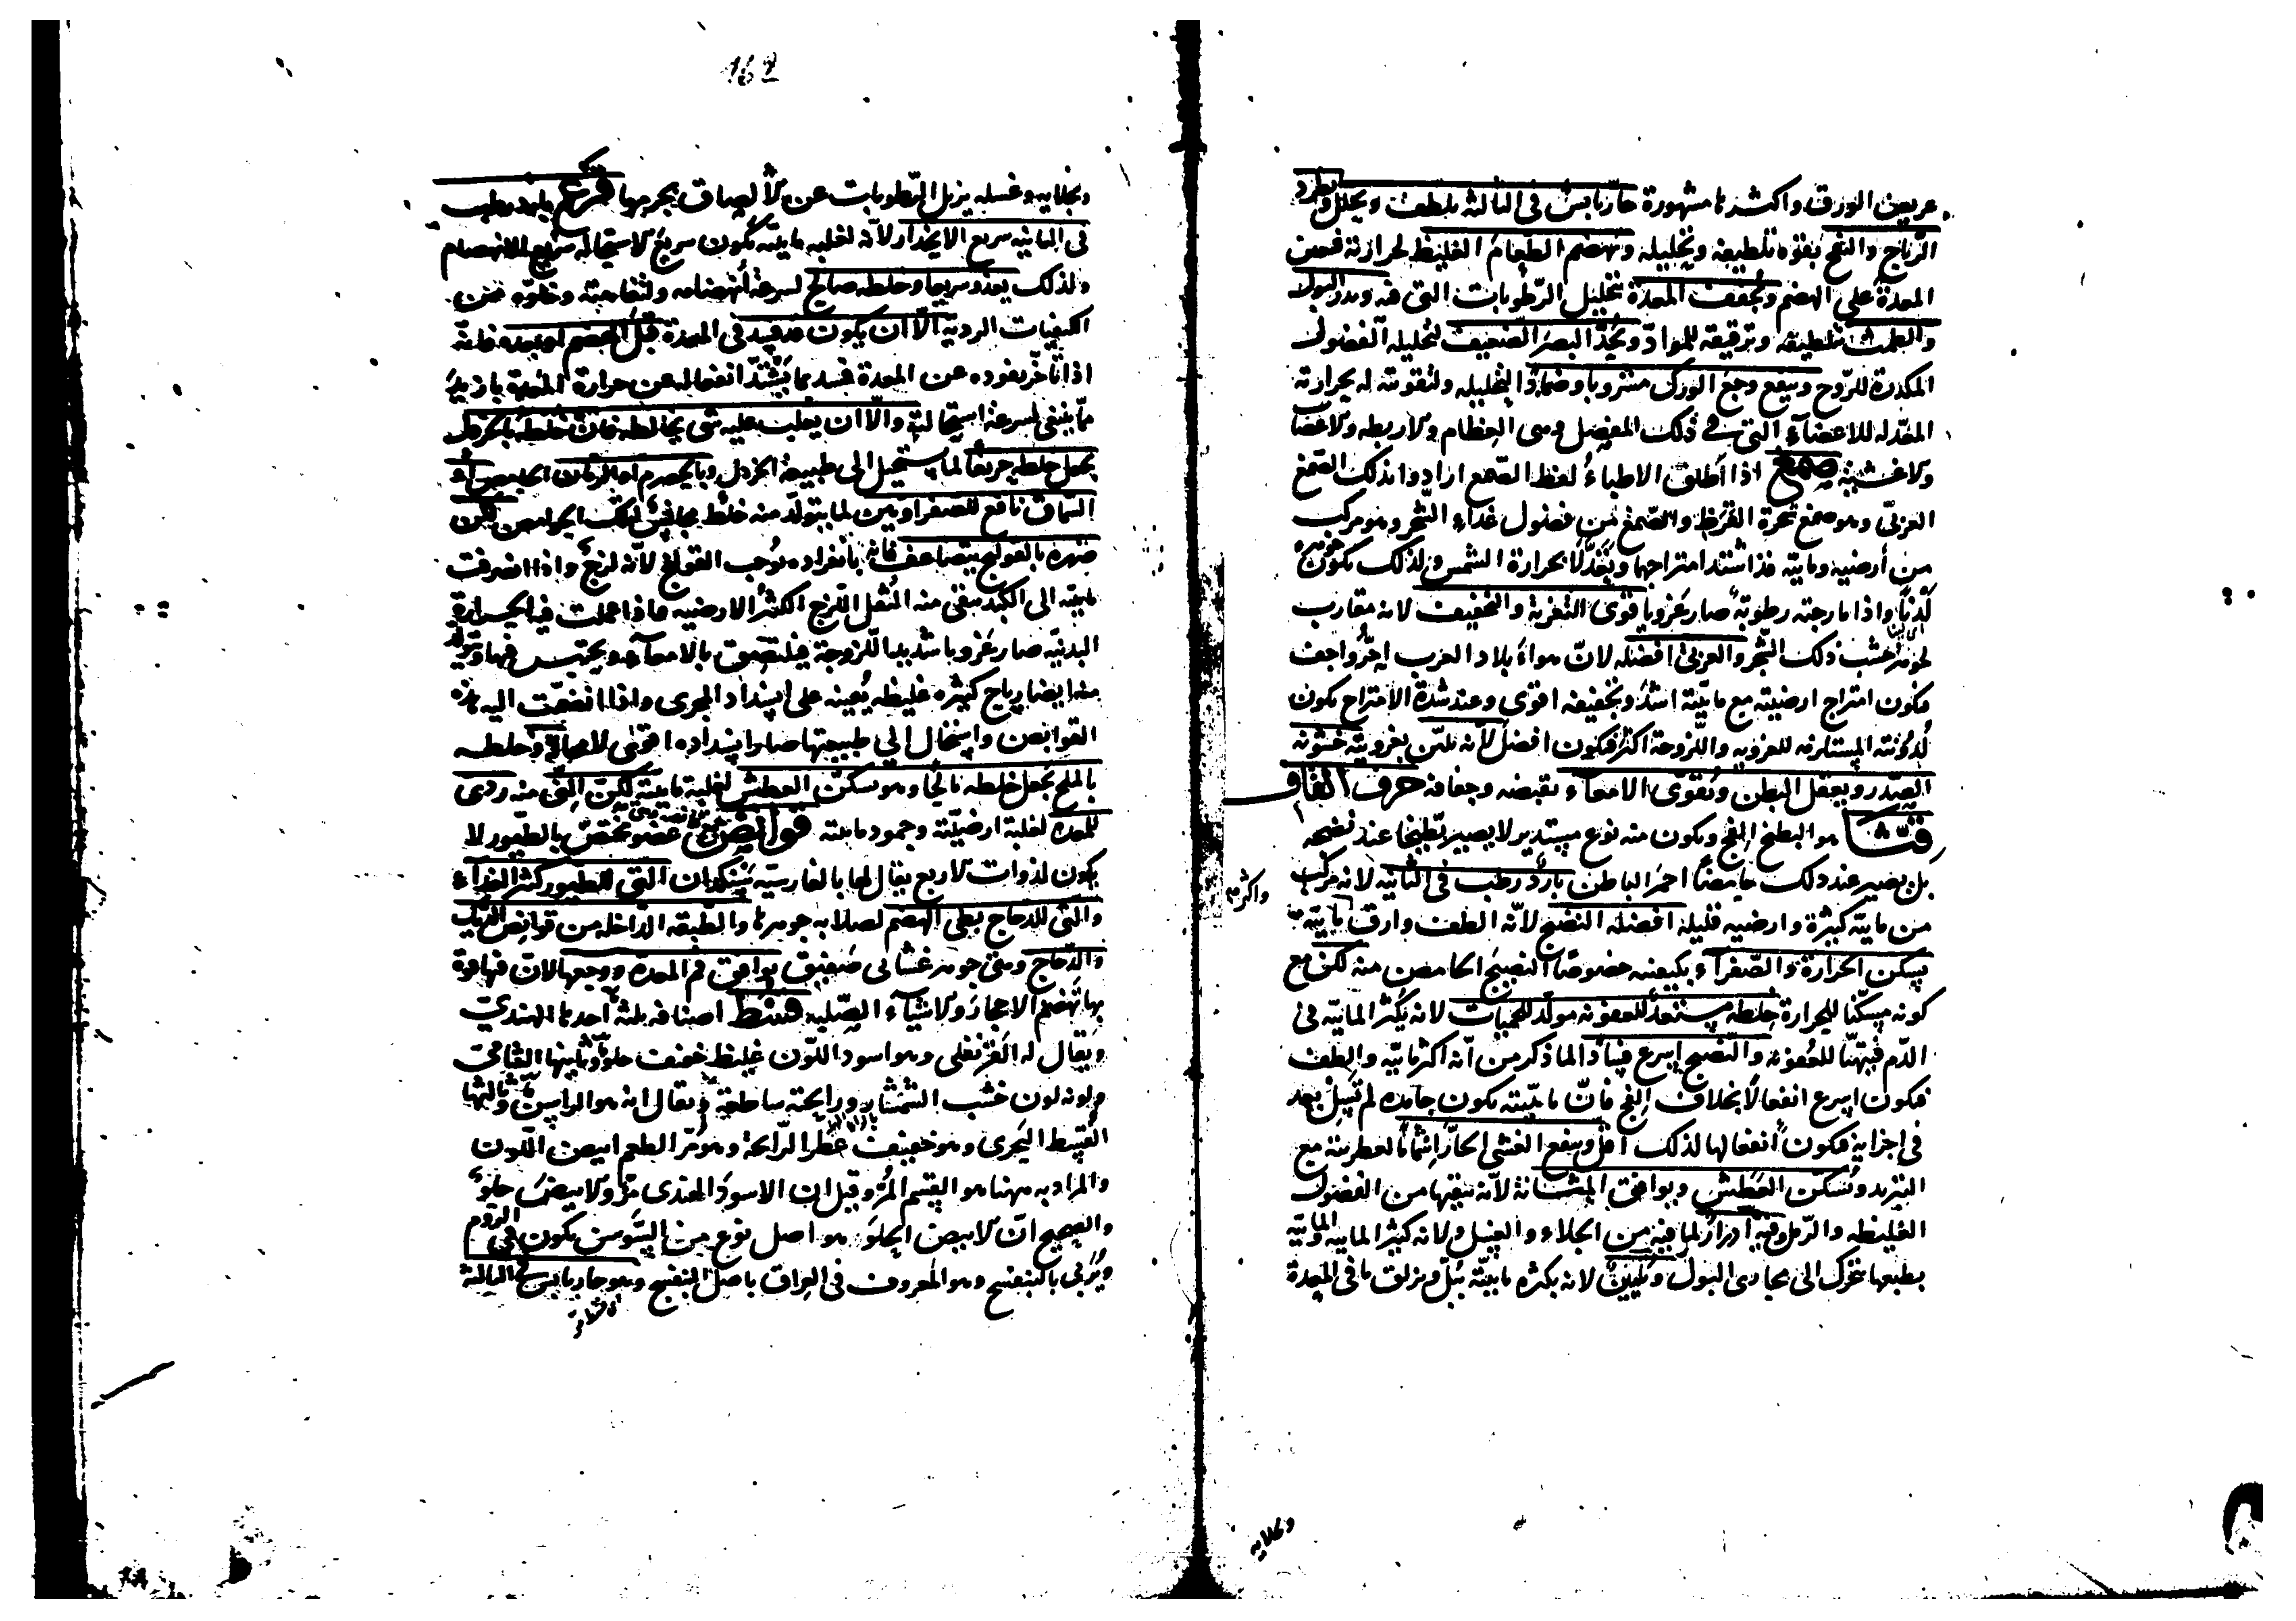 عريض الورق واكثرها مشهورة حار يابس فى الثالثة يلطف ويحلل ويطرد
الرياح والنفخ بقوة تلطيفه وتحليله ويهضم الطعام الغليظ لحرارته فتعين
المعدة على الهضم ويجفف المعدة بتحليل الرطوبات التى فيه ويدر البول
والطمث بتلطيفه وترقيقه للمواد ويحد البصر الضعيف لتحليله الفضول
المكدرة للروح وينفع وجع الورك مشروبا وضمادا لتحليله ولتقويته له بحرارته
المعدلة للاعضاء التى فى ذلك المفصل وهى العظام والاربطة والاعصاب
والاغشية صمغ اذا اطلق الاطباء لفظ الصمغ ارادوا بذلك الصمغ
العربى وهو صمغ شجرة القرظ والصمغ من فضول غذاء الشجر وهو مركب
من أرضية ومايية قد اشتد امتزاجها بحرارة الشمس ولذلك يكون جوهره
لدنا واذا مازجته رطوبة صار غرويا قوى التغرية والتجفيف لانه مقارب
لجوهر خشب ذلك الشجر والعربى افضله لان هواء بلاد العرب احر واجف
فيكون امتزاج ارضيته مع ماييته اشد وتجفيفه اقوى وعند شدة الامتزاج يكون
لدونته المستلزمة للغروية واللزوجة اكثر فيكون افضل لانه يلين بغرويته خشونة
الصدر ويعقل البطن ويقوى الامعاء بقبضه وجفافه حرف القاف
قثا هو البطيخ الفج ويكون منه نوع مستدير لا يصير بطيخا عند نضجه
بل يصير عند ذلك حامضا احمر الباطن بارد رطب فى الثانية لانه مركب
من مايية كثيرة وارضية قليلة افضله النضج لانه الطف وارق مايية
واكثر
يسكن الحرارة والصفراء بكيفيته خصوصا النضيج الحامض منه لكن مع
كونه مسكنا للحرارة خلطه مستعد للعفونة مولد للحميات لانه يكثر المايية فى
الدم فيهيأ للعفونة والنضيج اسرع فسادا لما ذكر من أنه اكثر مايية والطف
فيكون اسرع انفعالا بخلاف الفج فان ماييته يكون جامدة لم تسل بعد
فى اجزايه فيكون انفعالها لذلك اقل وينفع الغشى الحار اشتماما لعطريته مع
التبريد ويسكن العطش ويوافق المثانة لانه ينقيها من الفضول
الغليظة والرمل وفيه ادرار لما فيه من الجلاء والغسل ولانه كثير المايية والمايية
بطبعها تتحرك الى مجارى البول وتليين لانه بكثرة ماييته يبل ويزلق ما فى المعدة
وبجلايه
162
وبجلايه وغسله يزيل الرطوبات عن الالصاق بجرمها قرع بارد رطب
فى الثانية سريع الانحدار لانه لغلبة ماييته يكون سريع الاستحالة سريع الانهضام
ولذلك يغذو سريعا وخلطه صالح لسرعة انهضامه ولتفاهيته وخلوه من
الكيفيات الردية الا ان يكون قد فسد فى المعدة قبل الهضم او بعده فانه
اذا تأخر نفوذه عن المعدة فسد بما يشتد انفعاله عن حرارة المعدة بازيد
مما ينبغى لسرعة استحالته والا ان يغلب عليه شى يخالطه فان خلطه بالخردل
يجعل خلطه حريفا لما يستحيل الى طبيعة الخردل وبالحصرم او الرمان الحامض او
السماق نافع للصفراويين لما يتولد منه خلط يجانس تلك الحوامض لكن
ضرره بالقولنج يتضاعف فانه بانفراده يوجب القولنج لانه لزج واذا انصرفت
ماييته الى الكبد يبقى منه الثفل اللزج الكثير الارضية فاذا عملت فيه الحرارة
البدنية صار غرويا شديد اللزوجة فيلتصق بالامعاء ويحتبس فيها ويتولد
منه ايضا رياح كثيرة غليظة يعينه على انسداد المجرى واذا انضمت اليه هذه
القوابض واستحال الى طبيعتها صار انسداده اقوى وخلطه
بالملح يجعل خلطه مالحا وهو يسكن العطش لغلبة ماييته لكن النى منه ردى
للمعدة لغلبة ارضيته وجمود ماييته قوانص هى عضو مختص بالطيور لا
يكون لذوات الاربع يقال لها بالفارسية سنكدان التى للطيور كثير الغذاء
والتى للدجاج بطى الهضم لصلابة جوهرها والطبقة الداخلة من قوانص الديك
والدجاج وهى جوهر غشائى يوافق فم المعدة ووجعها لان فيها قوة
بها تهضم الاحجار والاشياء الصلبة قسط اصنافه ثلثة احدها الهندى
ويقال له القرنفلى وهو اسود اللون غليظ خفيف حلو وثانيها الشامى
ولونه لون خشب الشمشار ورايحته ساطعة ويقال انه هو الراسن وثالثها
القسط البحرى وهو خفيف عطر الرائحة وهو مر الطعم ابيض اللون
والمراد به ههنا هو القسم المر وقيل ان الاسود الهندى مر والابيض حلو
والصحيح ان الابيض الحلو هو اصل نوع من السوسن يكون فى الروم
ويربى بالبنفسج وهو المعروف فى العراق باصل البنفسج وهو حار يابس فى الثالثة